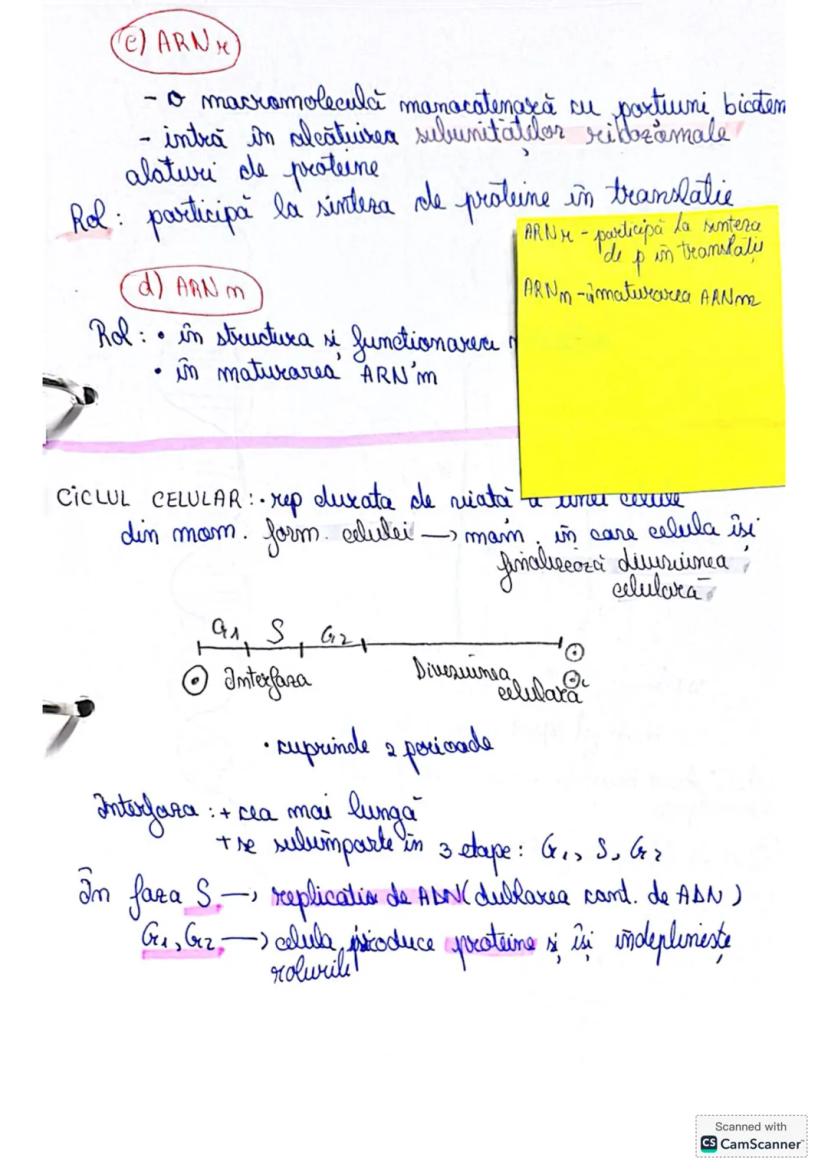 c) ARN r
- o macromoleculă monocatenară cu porțiuni bicaten
- intră în alcătuirea subunităților ribozomale
alaturi de proteine
Rol: participă la sinteza de proteine în translatie
ARN r - participă la sinteza
de p în translație
ARN m - în maturarea ARNm
d) ARN m
Rol: • în structura și functionarea
• în maturarea ARN'm
CICLUL CELULAR: • rep durata de viată a unei celule
din mom. form. celulei → mom. în care celula își
finalizează diviziunea
celulară
G1 S G2
Interfaza Diviziunea
celulară
• cuprinde 2 perioade
Interfaza: + cea mai lungă
+ se subîmparte în 3 etape: G1, S, G2
În faza S → replicatia de ADN (dublarea cant. de ADN)
G1, G2 → celula produce proteine și își îndeplinește
rolurile
Scanned with
CS CamScanner